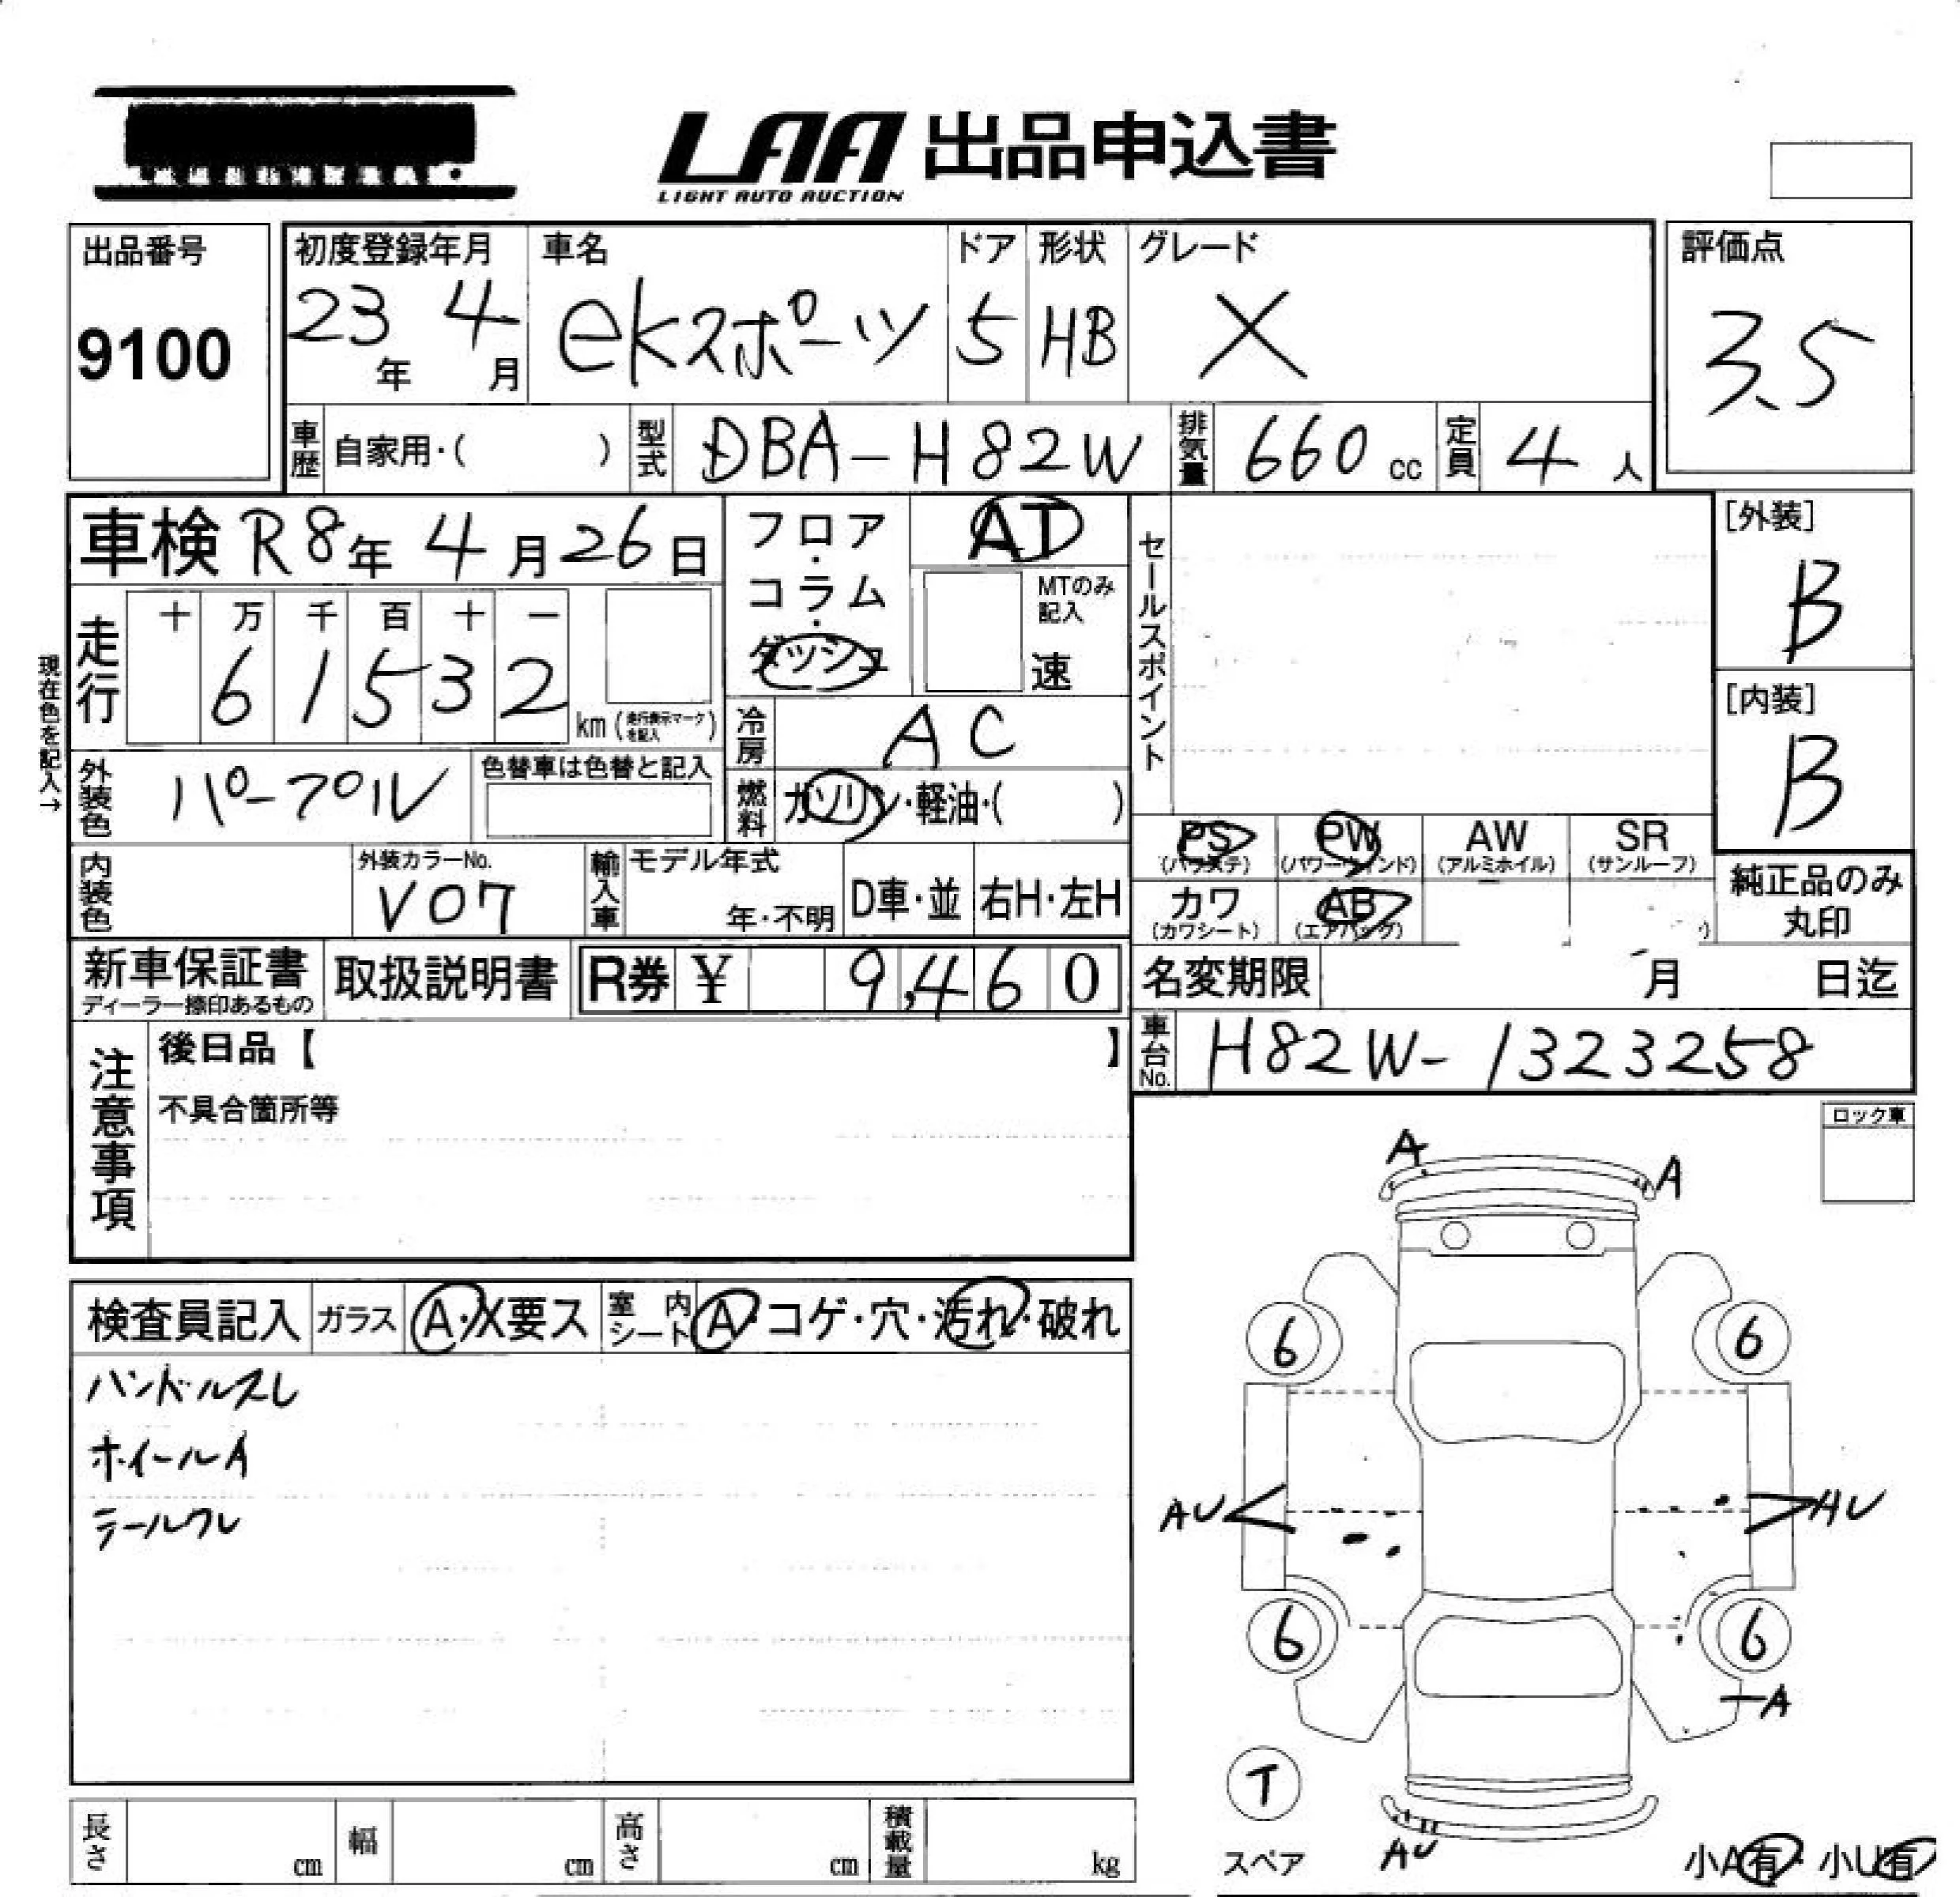 LAA 出品申込書
LIGHT AUTO AUCTION
出品番号
9100
初度登録年月
23年 4月
車名
ekスポーツ
ドア
5
形状
HB
グレード
X
評価点
3.5
車歴 自家用・( )
型式 DBA-H82W
排気量 660 cc
定員 4 人
車検 R8年 4月 26日
フロア・コラム・ダッシュ
AT
MTのみ記入
速
セールスポイント
[外装]
B
[内装]
B
現在色を記入→
走行
十 万 千 百 十 一
6 1 5 3 2
km (走行表示マークを記入)
冷房 AC
外装色 パープル
色替車は色替と記入
燃料 ガソリン・軽油・( )
PS (パワステ)
PW (パワーウィンド)
AW (アルミホイル)
SR (サンルーフ)
カワ (カワシート)
AB (エアバッグ)
純正品のみ丸印
内装色
外装カラーNo.
V07
輸入車
モデル年式
年・不明
D車・並
右H・左H
新車保証書
ディーラー捺印あるもの
取扱説明書
R券 ¥ 9,460
名変期限 月 日迄
車台No. H82W-1323258
注意事項
後日品【 】
不具合箇所等
ロック車
検査員記入
ガラス A・X要ス
室内シート A・コゲ・穴・汚れ・破れ
ハンドルスレ
ホイールA
テールワレ
A
A
6
6
AU
AU
6
6
A
T
スペア
AU
小A有・小U有
長さ cm
幅 cm
高さ cm
積載量 kg